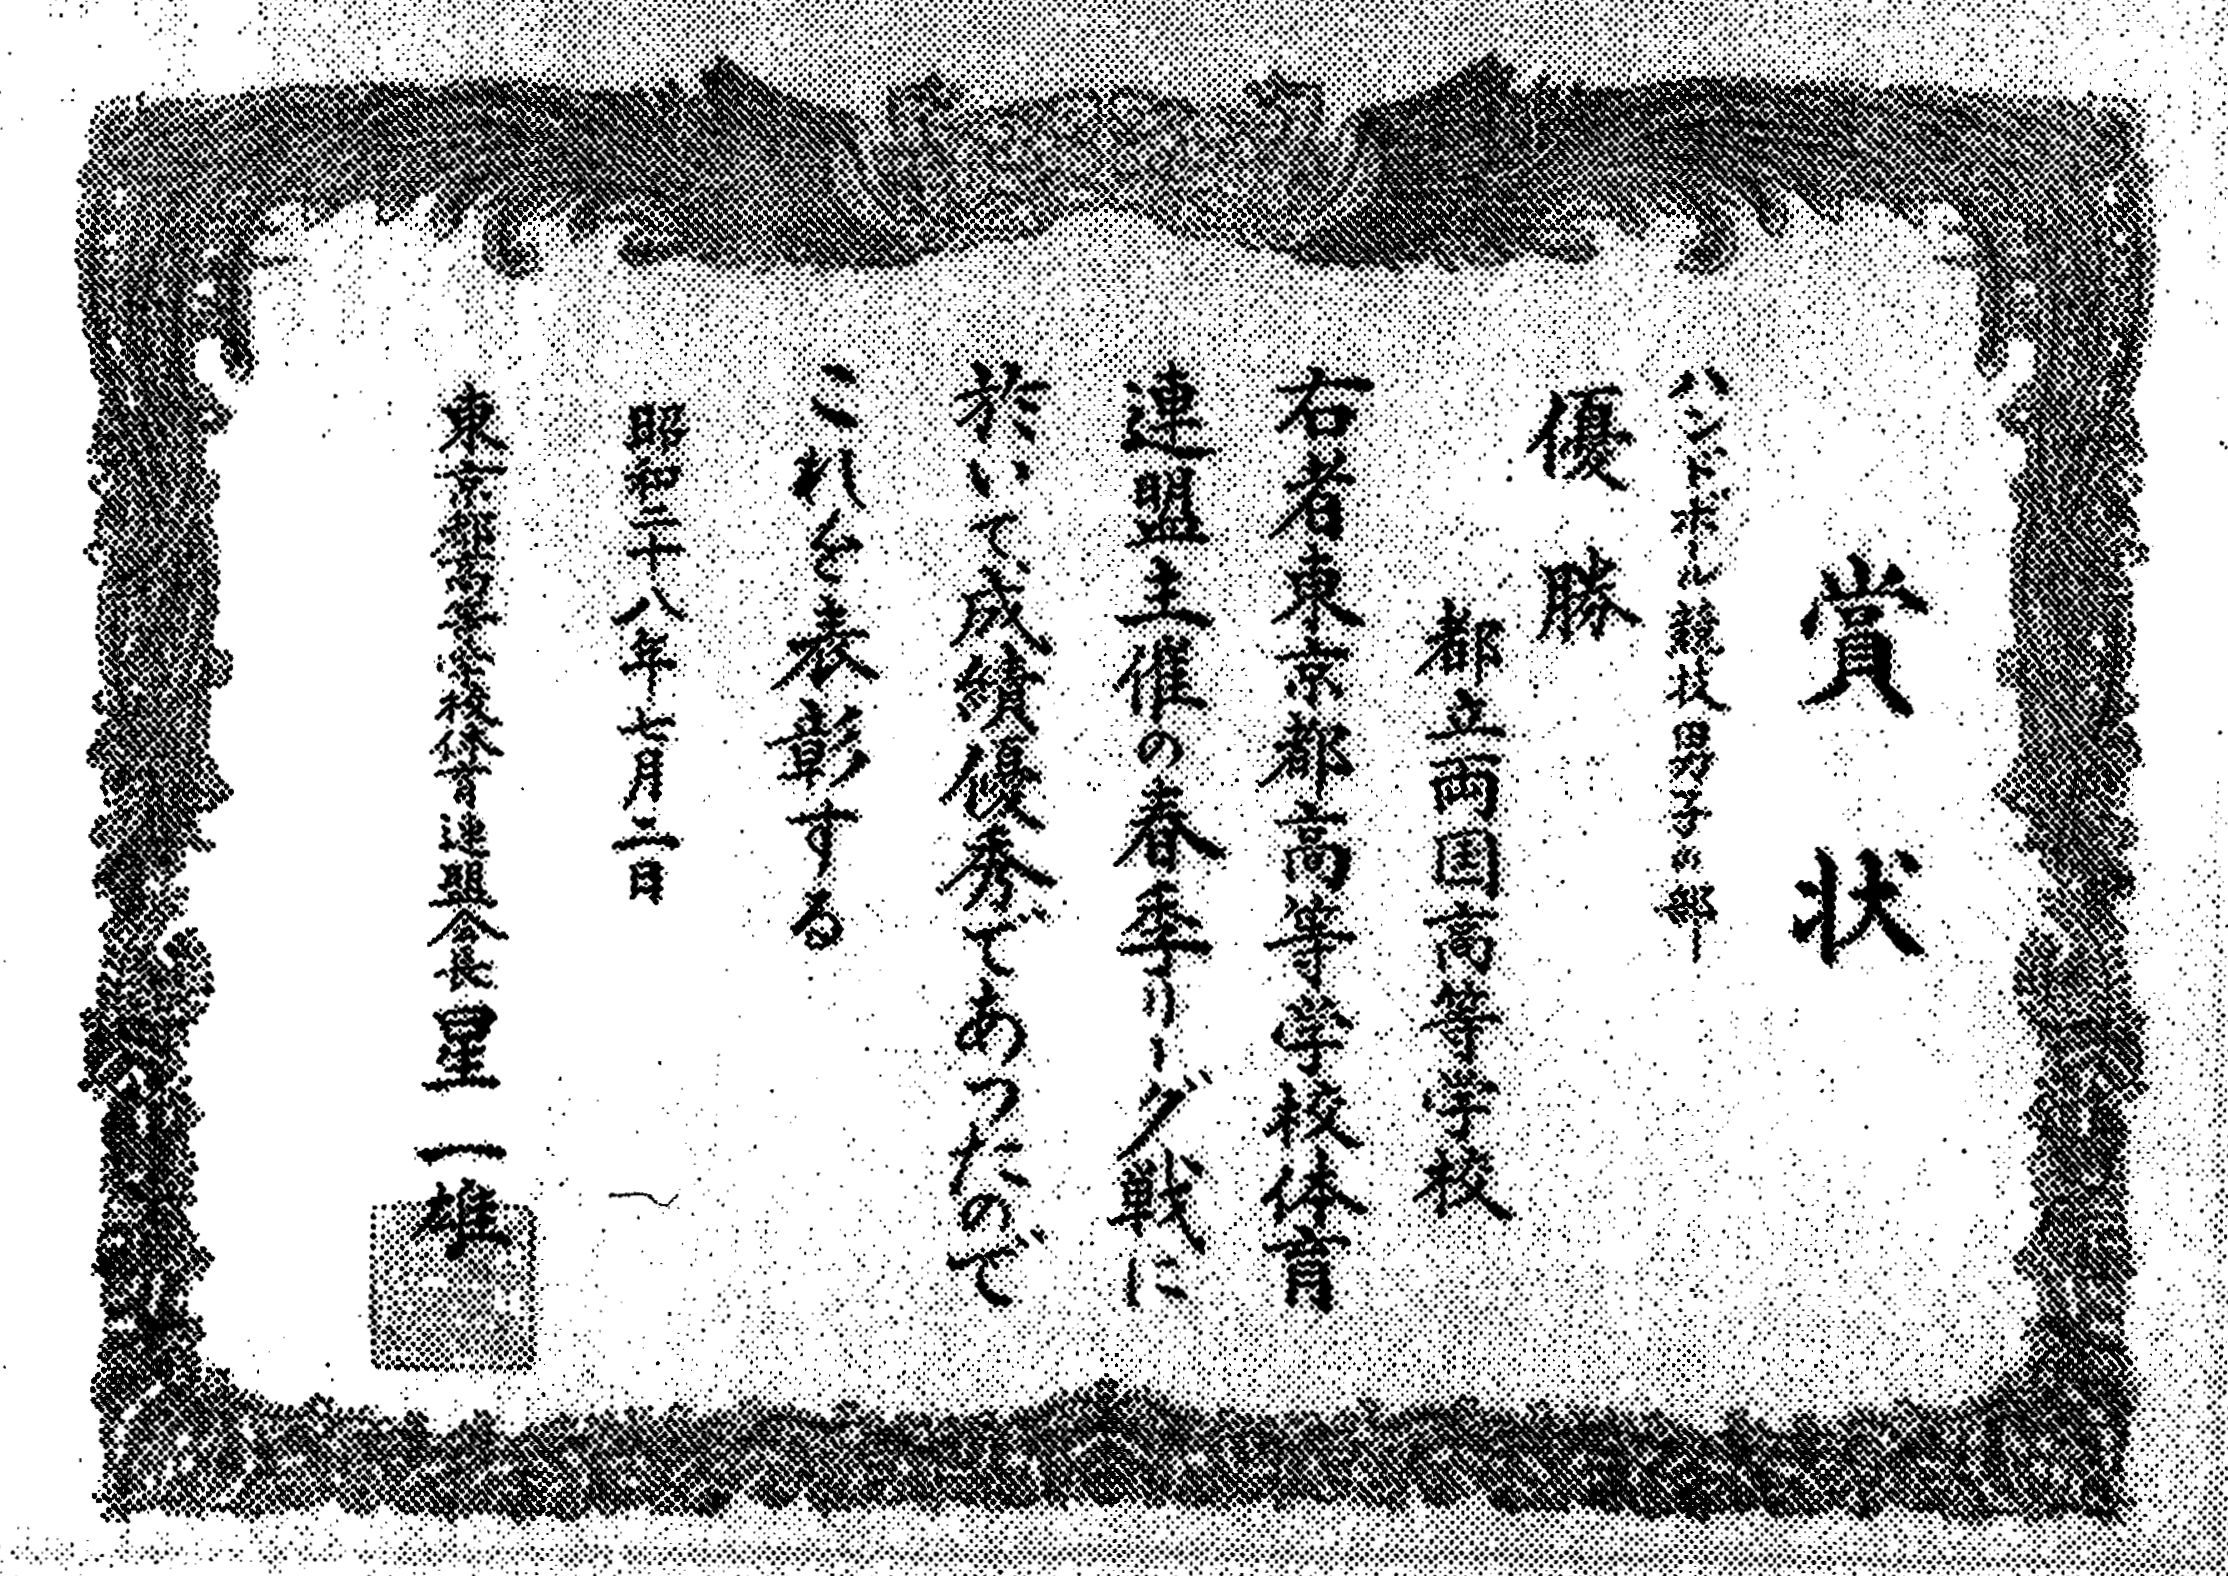 賞状
ハンドボール競技男子の部
優勝
都立両国高等学校
右者東京都高等学校体育
連盟主催の春季リーグ戦に
於いて成績優秀であつたので
これを表彰する
昭和二十八年七月二日
東京都高等学校体育連盟会長 星一雄